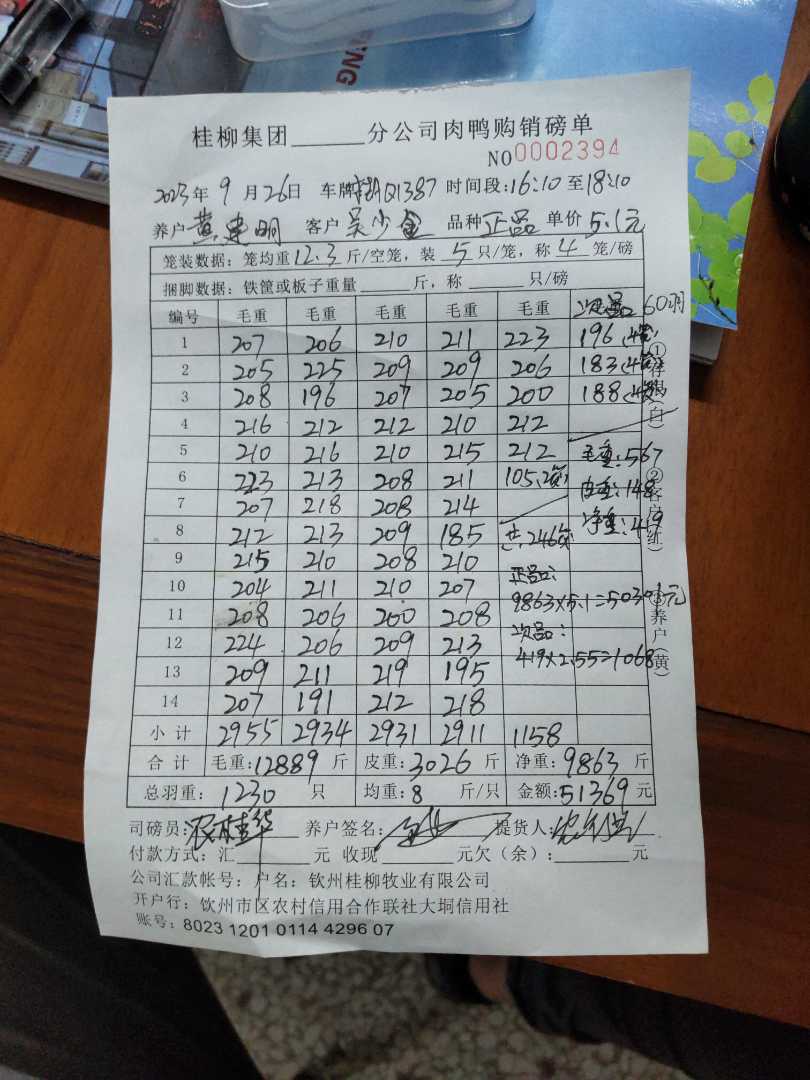 桂柳集团______分公司肉鸭购销磅单
NO0002394
2023年 9 月 26日 车牌 Q1387 时间段:16:10 至18:10
养户 黄建明 客户 吴少金 品种 正品 单价 5.1元
笼装数据: 笼均重12.3斤/空笼, 装 5 只/笼, 称 4 笼/磅
捆脚数据: 铁筐或板子重量______斤, 称______只/磅
编号 毛重 毛重 毛重 毛重 毛重 次品 60羽
1 207 206 210 211 223 196
2 205 225 209 209 206 183
3 208 196 207 205 200 188
4 216 212 212 210 212
5 210 216 210 215 212 毛重:567
6 223 213 208 211 105 皮重:148
7 207 218 208 214 净重:419
8 212 213 209 185 共246笼
9 215 210 208 210 正品:
10 204 211 210 207
11 208 206 200 208 9863×5.1=50301元
12 224 206 209 213 次品:
13 209 211 219 195 419×2.55=1068
14 207 191 212 218
小计 2955 2934 2931 2911 1158
合计 毛重:12889 斤 皮重:3026 斤 净重:9863 斤
总羽重: 1230 只 均重:8 斤/只 金额:51369 元
①存揭(白) ②客户(红) ③养户(黄)
司磅员:农桂华 养户签名: 提货人:
付款方式: 汇______元 收现______元欠(余):______元
公司汇款帐号: 户名: 钦州桂柳牧业有限公司
开户行: 钦州市区农村信用合作联社大垌信用社
账号: 8023 1201 0114 4296 07